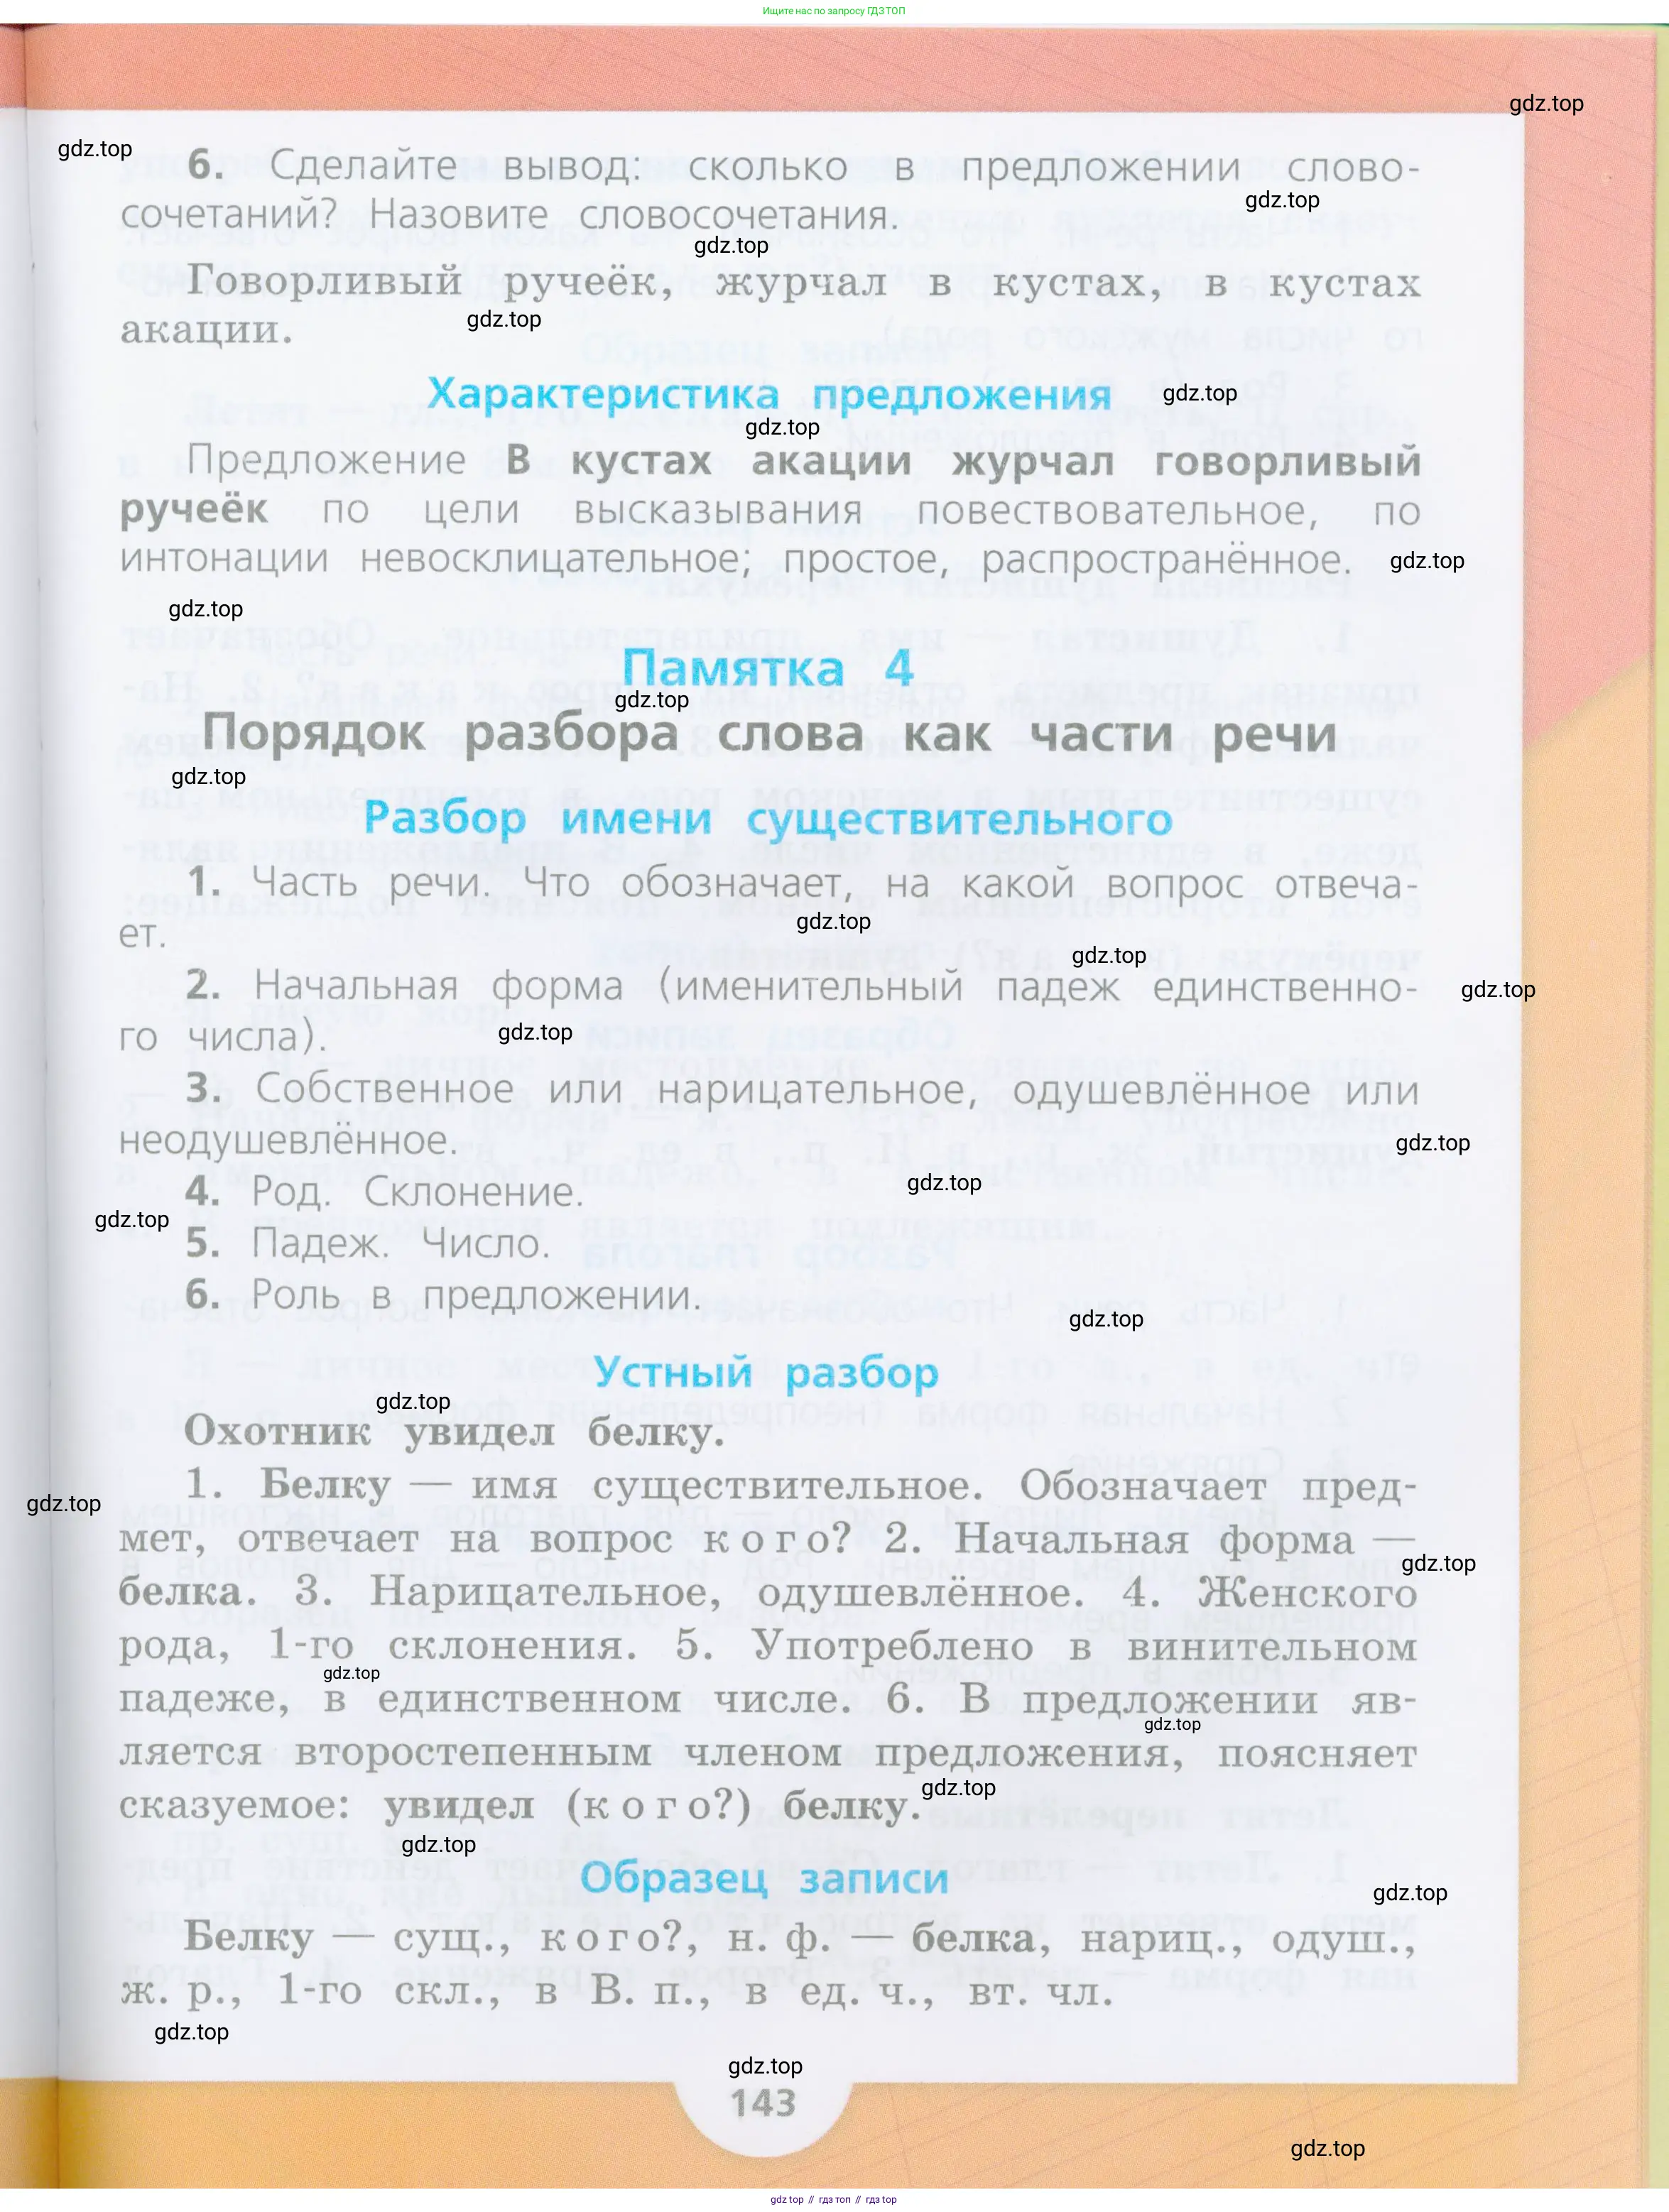 Ищите нас по запросу ГДЗ ТОП
gdz.top
gdz.top
6. Сделайте вывод: сколько в предложении слово-
gdz.top
сочетаний? Назовите словосочетания.
gdz.top
Говорливый ручеёк, журчал в кустах, в кустах
gdz.top
акации.
Характеристика предложения gdz.top
gdz.top
Предложение В кустах акации журчал говорливый
ручеёк по цели высказывания повествовательное, по
интонации невосклицательное; простое, распространённое. gdz.top
gdz.top
Памятка 4
gdz.top
Порядок разбора слова как части речи
gdz.top
Разбор имени существительного
1. Часть речи. Что обозначает, на какой вопрос отвеча-
gdz.top
ет.
gdz.top
2. Начальная форма (именительный падеж единственно-
gdz.top
го числа). gdz.top
3. Собственное или нарицательное, одушевлённое или
неодушевлённое. gdz.top
4. Род. Склонение. gdz.top
gdz.top
5. Падеж. Число.
6. Роль в предложении.
gdz.top
Устный разбор
gdz.top
Охотник увидел белку.
1. Белку — имя существительное. Обозначает пред-
gdz.top
мет, отвечает на вопрос кого? 2. Начальная форма —
gdz.top
белка. 3. Нарицательное, одушевлённое. 4. Женского
рода, 1-го склонения. 5. Употреблено в винительном
gdz.top
падеже, в единственном числе. 6. В предложении яв-
gdz.top
ляется второстепенным членом предложения, поясняет
gdz.top
сказуемое: увидел (кого?) белку.
gdz.top
Образец записи
gdz.top
Белку — сущ., кого?, н. ф. — белка, нариц., одуш.,
ж. р., 1-го скл., в В. п., в ед. ч., вт. чл.
gdz.top
gdz.top
143
gdz.top
gdz top // гдз топ // гдз top